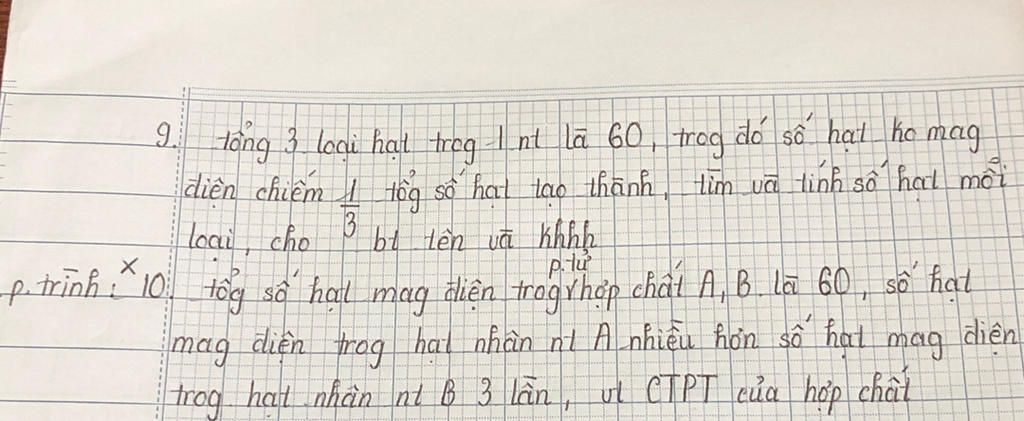 9. tổng 3 loại hạt trog 1 nt là 60, trog đó số hạt ko mag
điện chiếm 1/3 tổg số hạt tạo thành, tìm và tính số hạt mỗi
loại, cho bt tên và khhh
p. trình: x 10. tổg số hạt mag điện trog p.tử hợp chất A, B là 60, số hạt
mag điện trog hạt nhân nt A nhiều hơn số hạt mag điện
trog hạt nhân nt B 3 lần, vt CTPT của hợp chất